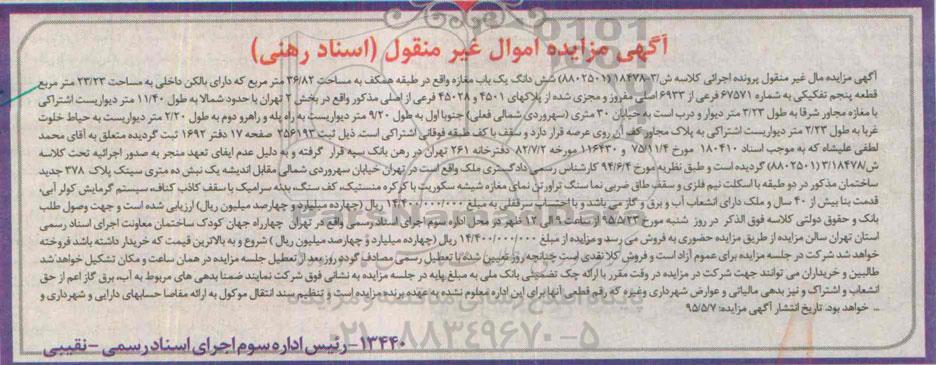 آگهی مزایده اموال غیر منقول (اسناد رهنی)
آگهی مزایده مال غیر منقول پرونده اجرائی کلاسه ش/۳-۱۸۴۷۸ (۸۸۰۲۵۰۱) شش دانگ یک باب مغازه واقع در طبقه همکف به مساحت ۳۶/۸۲ متر مربع که دارای بالکن داخلی به مساحت ۲۳/۲۳ متر مربع
قطعه پنجم تفکیکی به شماره ۶۷۵۷۱ فرعی از ۶۹۳۳ اصلی مفروز و مجزی شده از پلاکهای ۴۵۰۱ و ۴۵۰۲۸ فرعی از اصلی مذکور واقع در بخش ۲ تهران با حدود شمالا به طول ۱۱/۴۰ متر دیواریست اشتراکی
با مغازه مجاور شرقا به طول ۳/۲۳ متر دیوار و درب است به خیابان ۳۰ متری (سهروردی شمالی فعلی) جنوبا اول به طول ۹/۲۰ متر دیواریست به راه پله و راهرو دوم به طول ۲/۲۰ متر دیواریست به حیاط خلوت
غربا به طول ۲/۲۳ متر دیواریست اشتراکی به پلاک مجاور کف آن روی عرصه قرار دارد و سقف با کف طبقه فوقانی اشتراکی است. ذیل ثبت ۲۵۶۱۹۳ صفحه ۱۷ دفتر ۱۶۹۲ ثبت گردیده متعلق به آقای محمد
لطفی علیشاه که به موجب اسناد ۱۸۰۴۱۰ مورخ ۷۵/۱۱/۴ و ۱۱۶۴۳۰ مورخه ۸۲/۷/۲ دفترخانه ۲۶۱ تهران در رهن بانک سپه قرار گرفته و به دلیل عدم ایفای تعهد منجر به صدور اجرائیه تحت کلاسه
ش/۳/۱۸۴۷۸ (۸۸۰۲۵۰۱) گردیده است و طبق نظریه مورخ ۹۴/۶/۴ کارشناس رسمی دادگستری ملک واقع است در تهران خیابان سهروردی شمالی مقابل اندیشه یک نبش ده متری سینک پلاک ۳۷۸ جدید
ساختمان مذکور در دو طبقه با اسکلت نیم فلزی و سقف طاق ضربی نما سنگ تراورتن نمای مغازه شیشه سکوریت با کرکره منستیک، کف سنگ، بدنه سرامیک با سقف کاذب کناف، سیستم گرمایش کولر آبی،
قدمت بنا بیش از ۴۰ سال و ملک دارای انشعاب آب و برق و گاز می باشد و با احتساب سرقفلی به مبلغ ۱۴/۴۰۰/۰۰۰/۰۰۰ ریال (چهارده میلیارد و چهارصد میلیون ریال) ارزیابی شده است و جهت وصول طلب
بانک و حقوق دولتی کلاسه فوق الذکر در روز شنبه مورخ ۹۵/۵/۲۳ از ساعت ۹ الی ۱۲ ظهر در محل اداره سوم اجرای اسناد رسمی واقع در تهران چهارراه جهان کودک ساختمان معاونت اجرای اسناد رسمی
استان تهران سالن مزایده از طریق مزایده حضوری به فروش می رسد و مزایده از مبلغ ۱۴/۴۰۰/۰۰۰/۰۰۰ ریال (چهارده میلیارد و چهارصد میلیون ریال) شروع و به بالاترین قیمت که خریدار داشته باشد فروخته
خواهد شد شرکت در جلسه مزایده برای عموم آزاد است و فروش کلا نقدی است چنانچه روز تعیین شده با تعطیل رسمی مصادف گردد روز بعد از تعطیل جلسه مزایده در همان ساعت و مکان تشکیل خواهد شد
طالبین و خریداران می توانند جهت شرکت در مزایده در وقت مقرر با ارائه چک تضمینی بانک ملی به مبلغ پایه در جلسه مزایده به نشانی فوق شرکت نمایند ضمنا بدهی های مربوط به آب، برق گاز اعم از حق
انشعاب و اشتراک و نیز بدهی مالیاتی و عوارض شهرداری وغیره که رقم قطعی آنها برای این اداره معلوم نشده به عهده برنده مزایده است و تنظیم سند انتقال موکول به ارائه مفاصا حسابهای دارایی و شهرداری و
... خواهد بود. تاریخ انتشار آگهی مزایده: ۹۵/۵/۷
۱۳۴۴۰-رئیس اداره سوم اجرای اسناد رسمی -نقیبی
۰۲۱-۸۸۳۴۹۶۷۰-۵